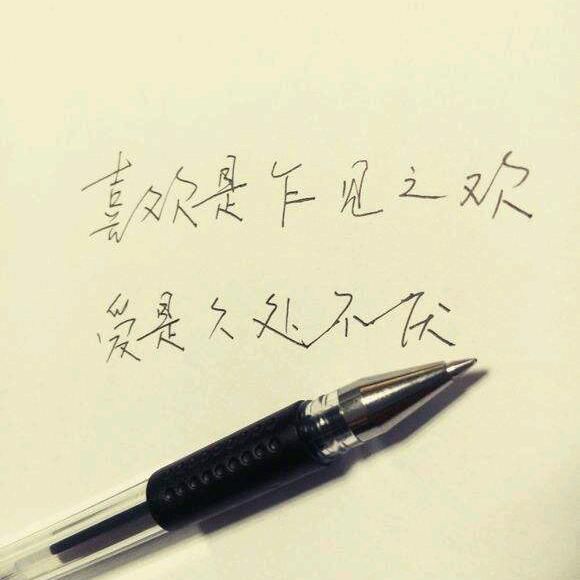 喜欢是乍见之欢
爱是久处不厌